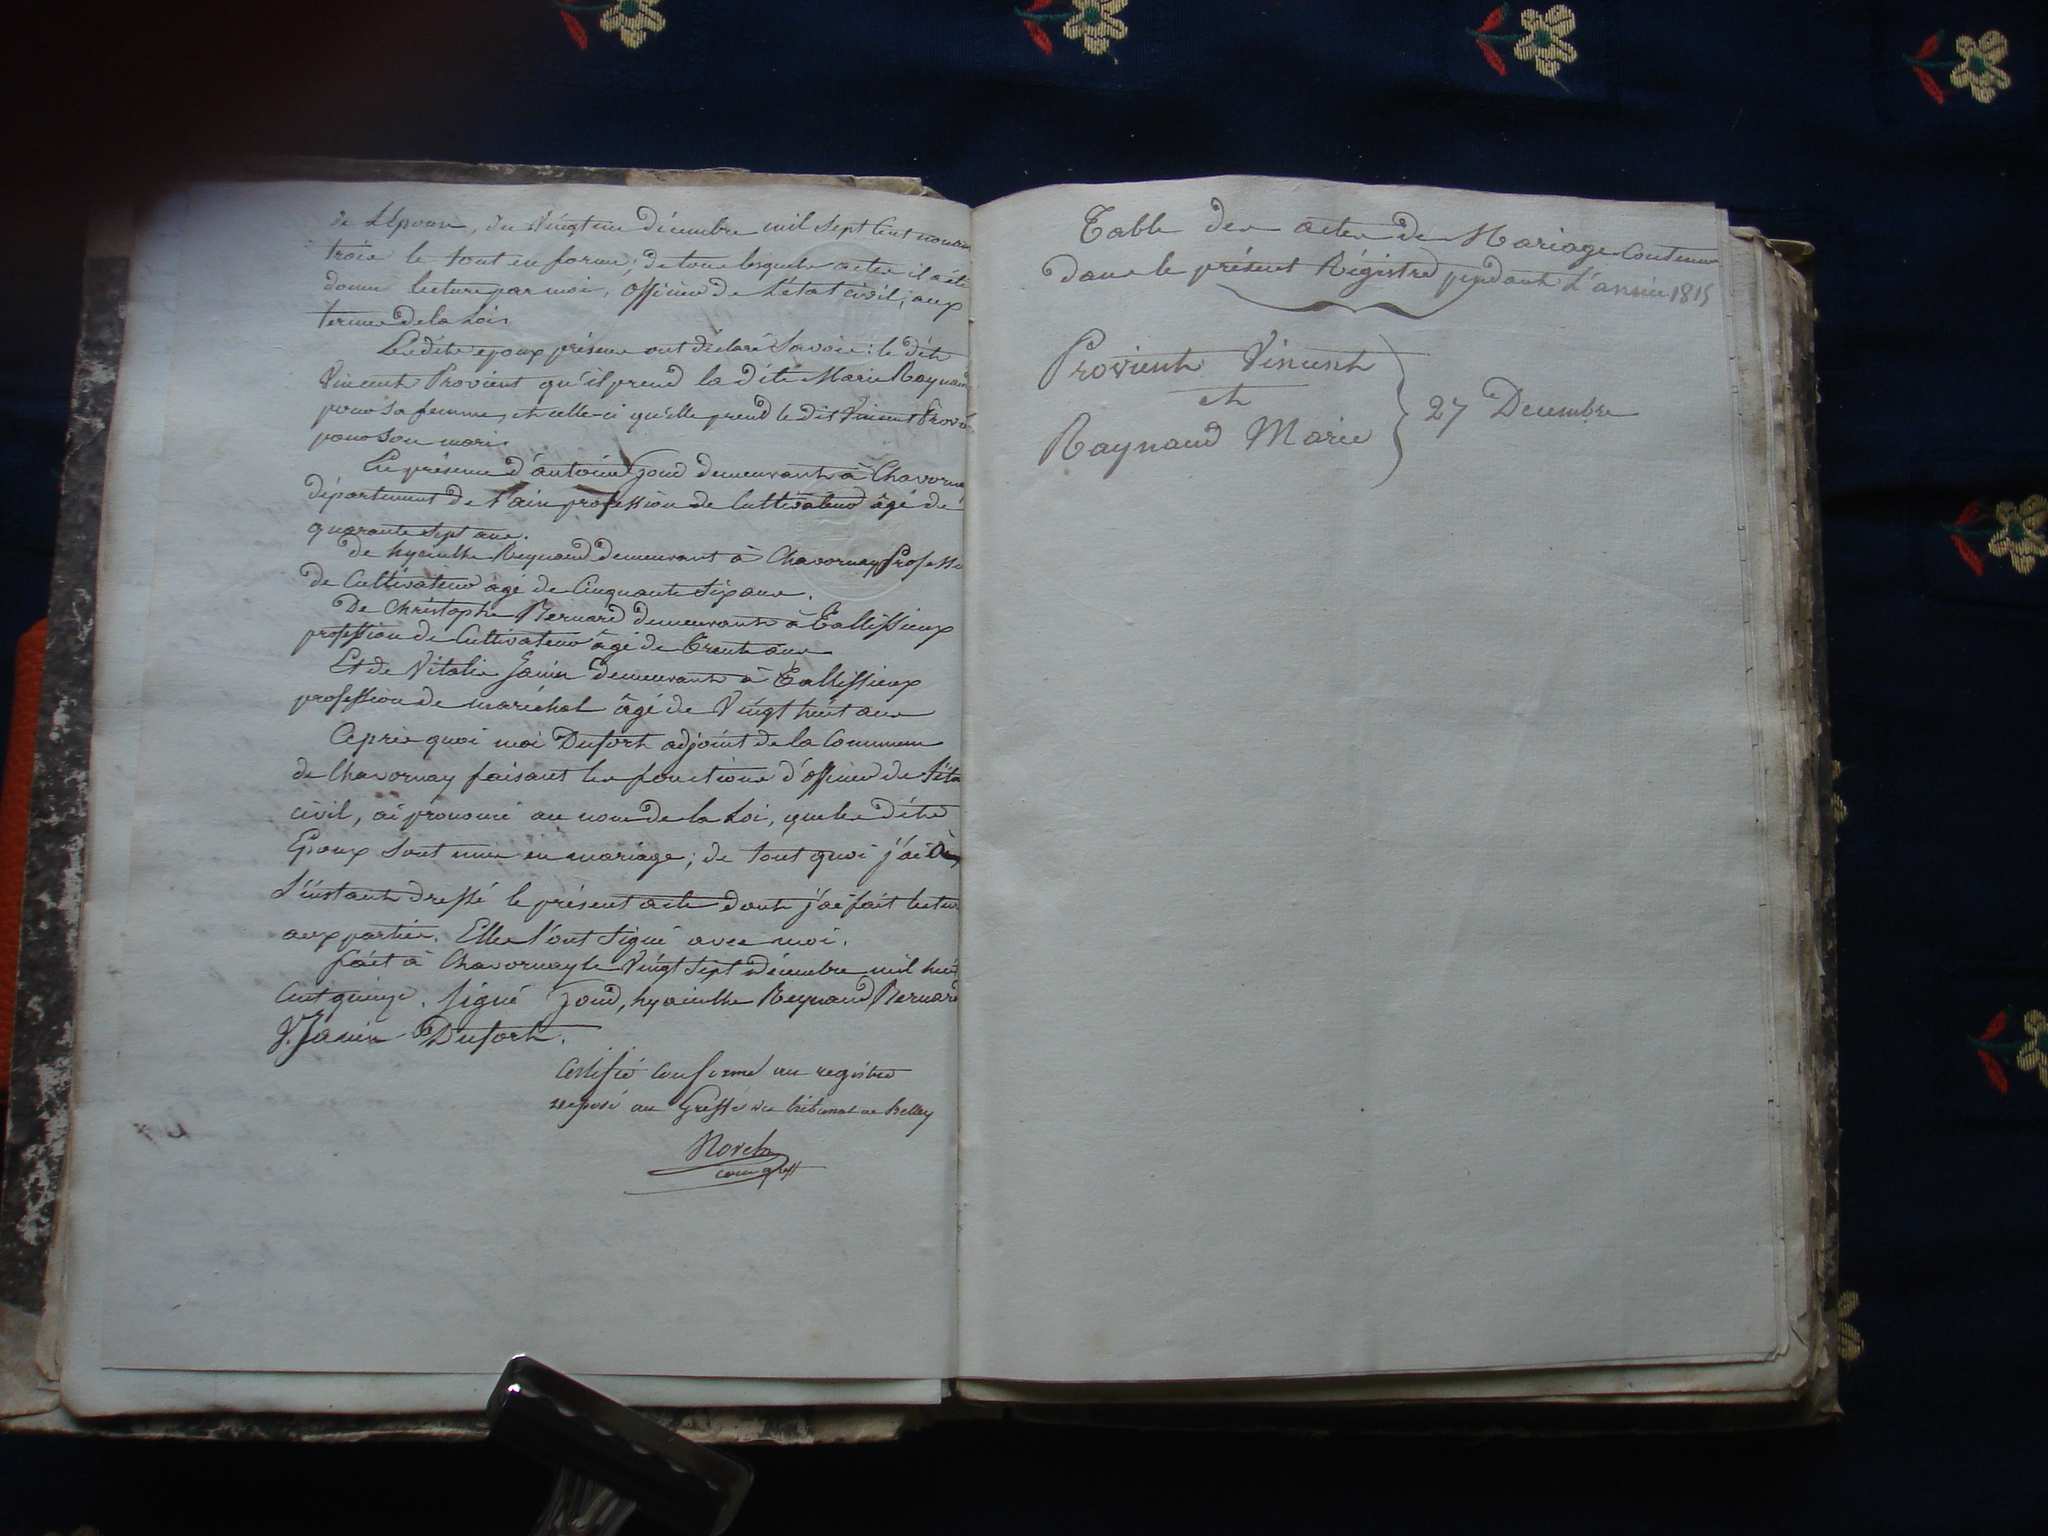 de L'Epouse, du vingt un décembre mil sept Cent nonan
trois le tout en forme; de tous lesquels actes il a été
donné lecture par moi, officier de L'état civil, aux
termes de la Loi.
Lesdits epoux présens ont déclaré Savoir: le dit
Vincent Provient qu'il prend la dite Marie Raynaud
pour sa femme, et celle-ci qu'elle prend le dit Vincent Provi
pour son mari.
En présence d'antoine Jond demeurant à Chavorna
département de l'ain profession de Cultivateur âgé de
quarante sept ans.
de hyacinthe Reynaud demeurant à Chavornay Professi
de Cultivateur âgé de Cinquante Six ans.
De Christophe Bernard demeurant à Tallissieux
profession de Cultivateur âgé de Trente ans
Et de Vitalis Janin demeurant à Tallissieux
profession de maréchal âgé de Vingt huit ans
Après quoi moi Dufort adjoint de la Commune
de Chavornay faisant les fonctions d'officier de l'éta
civil, ai prononcé au nom de la Loi, que les dits
Epoux Sont unis en mariage; de tout quoi j'ai à
L'instant dressé le présent acte dont j'ai fait lectur
aux parties. Elles l'ont Signé avec moi.
fait à Chavornay le Vingt Sept décembre mil huit
Cent quinze. Signé Jond, hyacinthe Reynaud Bernard
V. Janin Dufort.
Certifié conforme au registre
déposé au Greffe du tribunal de Belley
Table des actes de Mariage Contenus
dans le présent Régistre pendant L'année 1815
Provient Vincent
et
Raynaud Marie
27 Decembre